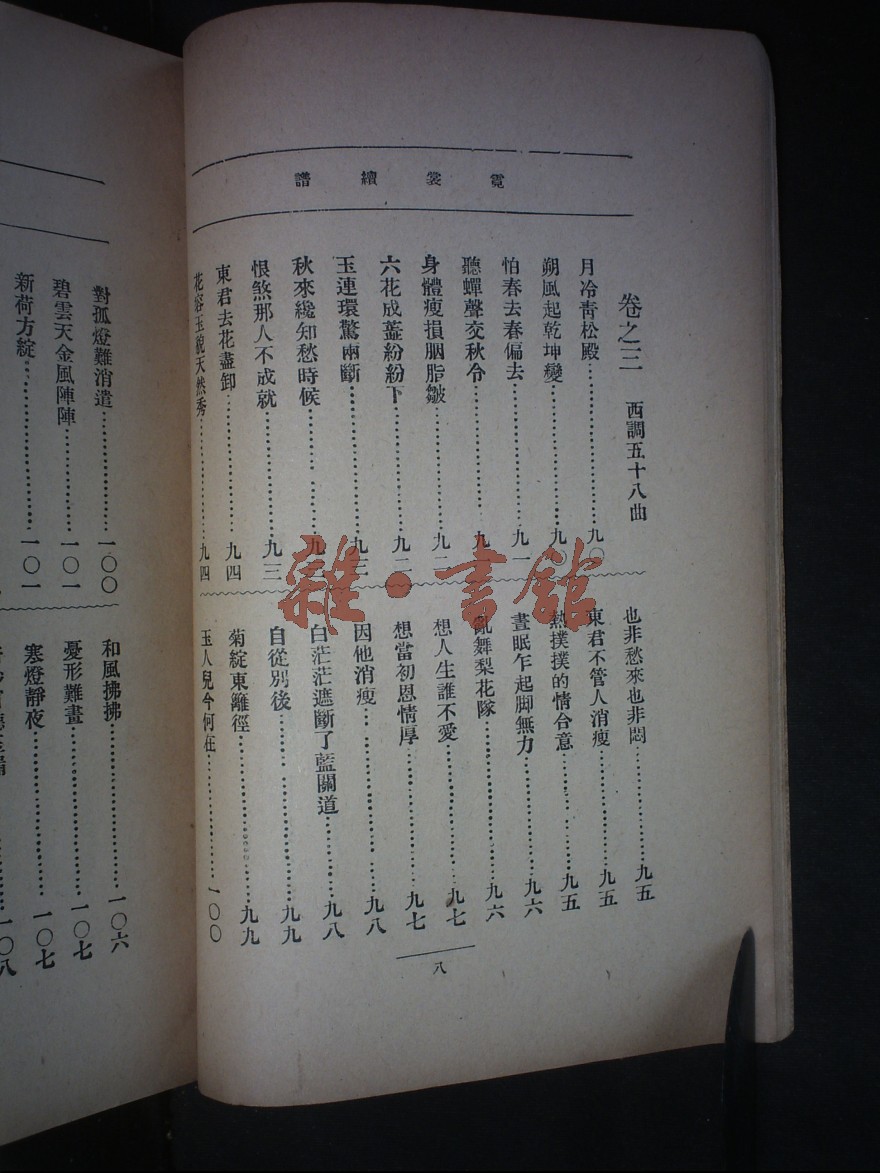 霓裳續譜
卷之三 西調五十八曲
月冷靑松殿……九〇
朔風起乾坤變……九〇
怕春去春偏去……九一
聽蟬聲交秋令……九
身體瘦損胭脂皺……九二
六花成蓋紛紛下……九二
玉連環驚兩斷……九三
秋來纔知愁時候……九
恨煞那人不成就……九三
東君去花盡卸……九四
花容玉貌天然秀……九四
也非愁來也非悶……九五
東君不管人消瘦……九五
熱撲撲的情合意……九五
晝眠乍起脚無力……九六
亂舞梨花隊……九六
想人生誰不愛……九七
想當初恩情厚……九七
因他消瘦……九八
白茫茫遮斷了藍關道……九八
自從別後……九九
菊綻東籬徑……九九
玉人兒今何在……一〇〇
八
對孤燈難消遣……一〇〇
碧雲天金風陣陣……一〇一
新荷方綻……一〇一
和風拂拂……一〇六
憂形難畫……一〇七
寒燈靜夜……一〇七
一〇八
雜·書館